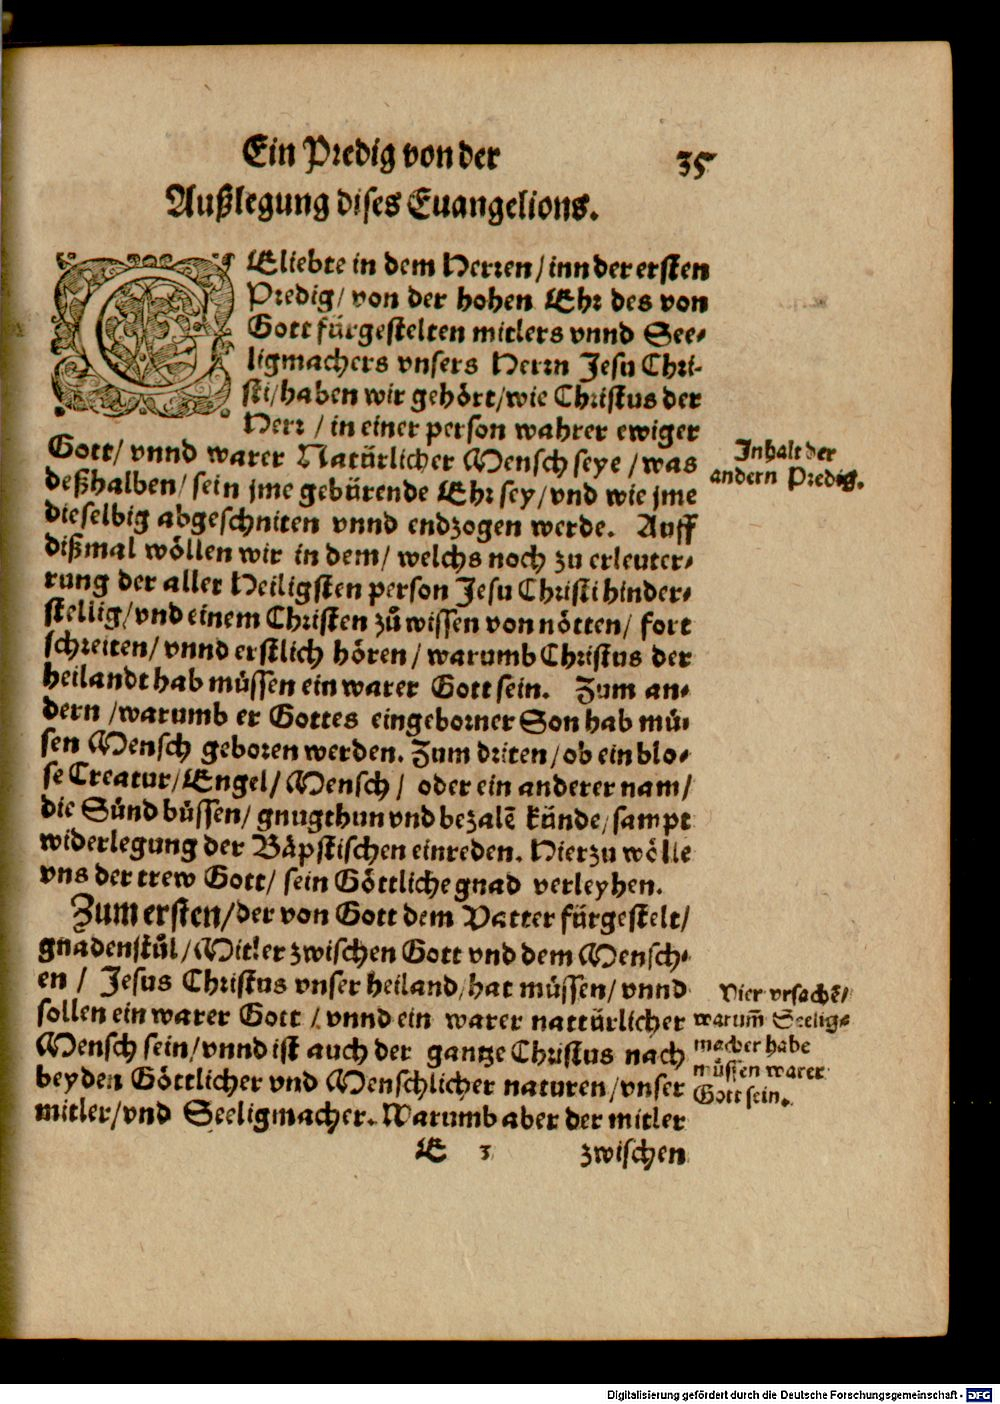 Ein Predig von der
35
Außlegung dises Euangelions.
GEliebte in dem Herren / inn der ersten
Predig / von der hohen Ehr des von
Gott fürgestelten mitlers vnnd See-
ligmachers vnsers Herrn Jesu Chri-
sti / haben wir gehört / wie Christus der
Herr / in einer person wahrer ewiger
Gott / vnnd warer Natürlicher Mensch seye / was
deßhalben / sein jme gebürende Ehr sey / vnd wie jme
dieselbig abgeschniten vnnd endzogen werde. Auff
dißmal wöllen wir in dem / welchs noch zu erleuter-
rung der aller Heiligsten person Jesu Christi hinder-
stellig / vnd einem Christen zů wissen von nötten / fort
schreiten / vnnd erstlich hören / warumb Christus der
heilandt hab müssen ein warer Gott sein. Zum an-
dern / warumb er Gottes eingeborner Son hab mü-
sen Mensch geboren werden. Zum driten / ob ein blo-
se Creatur / Engel / Mensch / oder ein anderer nam /
die Sünd büssen / gnugthun vnd bezalē künde / sampt
widerlegung der Bäpstischen einreden. Hierzu wölle
vns der trew Gott / sein Göttliche gnad verleyhen.
Zum ersten / der von Gott dem Vatter fürgestelt /
gnadenstůl / Mitler zwischen Gott vnd dem Mensch-
en / Jesus Christus vnser heiland / hat müssen / vnnd
sollen ein warer Gott / vnnd ein warer nattürlicher
Mensch sein / vnnd ist auch der gantze Christus nach
beyden Göttlicher vnd Menschlicher naturen / vnser
mitler / vnd Seeligmacher. Warumb aber der mitler
E 3
zwischen
Inhalt der
andern Predig.
Vier vrsachē /
warum̄ Seelig-
macher habe
müssen warer
Gott sein.
Digitalisierung gefördert durch die Deutsche Forschungsgemeinschaft - DFG